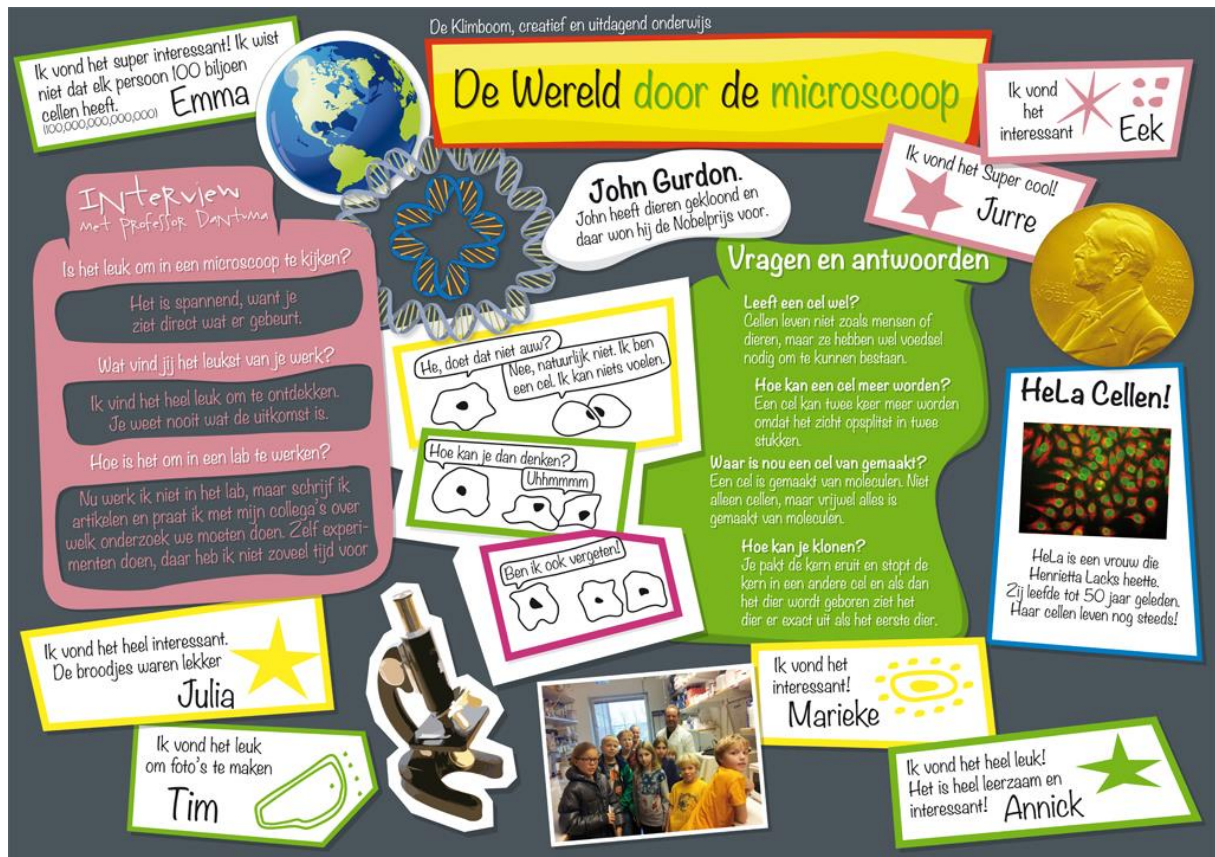 De Klimboom, creatief en uitdagend onderwijs
De Wereld door de microscoop
Ik vond het super interessant! Ik wist
niet dat elk persoon 100 biljoen
cellen heeft.
(100,000,000,000,000)
Emma
Ik vond
het
interessant
Eek
Ik vond het Super cool!
Jurre
John Gurdon.
John heeft dieren gekloond en
daar won hij de Nobelprijs voor.
INterview
met professor Dantuma
Is het leuk om in een microscoop te kijken?
Het is spannend, want je
ziet direct wat er gebeurt.
Wat vind jij het leukst van je werk?
Ik vind het heel leuk om te ontdekken.
Je weet nooit wat de uitkomst is.
Hoe is het om in een lab te werken?
Nu werk ik niet in het lab, maar schrijf ik
artikelen en praat ik met mijn collega's over
welk onderzoek we moeten doen. Zelf experi-
menten doen, daar heb ik niet zoveel tijd voor
He, doet dat niet auw?
Nee, natuurlijk niet. Ik ben
een cel. Ik kan niets voelen.
Hoe kan je dan denken?
Uhhmmmm
Ben ik ook vergeten!
Vragen en antwoorden
Leeft een cel wel?
Cellen leven niet zoals mensen of
dieren, maar ze hebben wel voedsel
nodig om te kunnen bestaan.
Hoe kan een cel meer worden?
Een cel kan twee keer meer worden
omdat het zicht opsplitst in twee
stukken.
Waar is nou een cel van gemaakt?
Een cel is gemaakt van moleculen. Niet
alleen cellen, maar vrijwel alles is
gemaakt van moleculen.
Hoe kan je klonen?
Je pakt de kern eruit en stopt de
kern in een andere cel en als dan
het dier wordt geboren ziet het
dier er exact uit als het eerste dier.
HeLa Cellen!
HeLa is een vrouw die
Henrietta Lacks heette.
Zij leefde tot 50 jaar geleden.
Haar cellen leven nog steeds!
Ik vond het heel interessant.
De broodjes waren lekker
Julia
Ik vond het leuk
om foto's te maken
Tim
Ik vond het
interessant!
Marieke
Ik vond het heel leuk!
Het is heel leerzaam en
interessant!
Annick